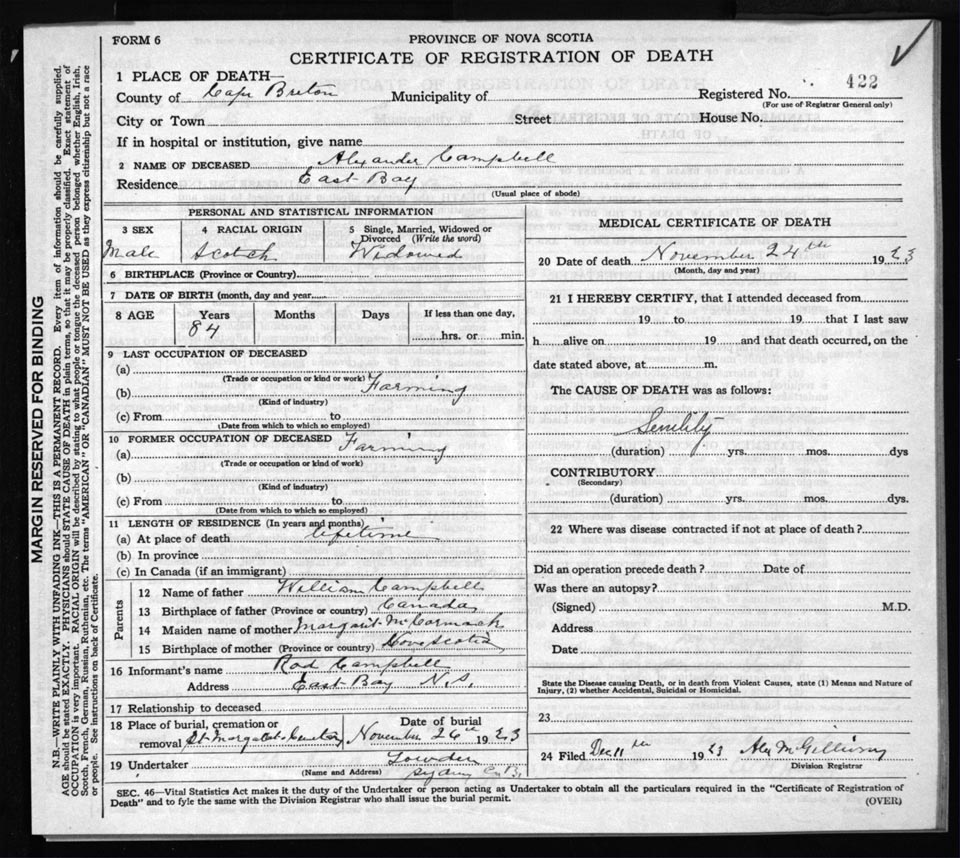 FORM 6
PROVINCE OF NOVA SCOTIA
CERTIFICATE OF REGISTRATION OF DEATH
1 PLACE OF DEATH—
County of Cape Breton Municipality of Registered No. 422
(For use of Registrar General only)
City or Town Street House No.
If in hospital or institution, give name
2 NAME OF DECEASED Alexander Campbell
Residence East Bay
(Usual place of abode)
PERSONAL AND STATISTICAL INFORMATION
3 SEX 4 RACIAL ORIGIN 5 Single, Married, Widowed or
Divorced (Write the word)
Male Scotch Widowed
6 BIRTHPLACE (Province or Country)
7 DATE OF BIRTH (month, day and year)
8 AGE Years Months Days If less than one day,
84 hrs. or min.
9 LAST OCCUPATION OF DECEASED
(a)
(Trade or occupation or kind or work)
(b) Farming
(Kind of industry)
(c) From to
(Date from which to which so employed)
10 FORMER OCCUPATION OF DECEASED
(a) Farming
(Trade or occupation or kind of work)
(b)
(Kind of industry)
(c) From to
(Date from which to which so employed)
11 LENGTH OF RESIDENCE (In years and months)
(a) At place of death lifetime
(b) In province
(c) In Canada (if an immigrant)
Parents
12 Name of father William Campbell
13 Birthplace of father (Province or country) Canada
14 Maiden name of mother Margaret McCormack
15 Birthplace of mother (Province or country) Nova Scotia
16 Informant's name Rod Campbell
Address East Bay N.S.
17 Relationship to deceased
18 Place of burial, cremation or Date of burial
removal St Margarets Cemetery November 26th 1923
19 Undertaker
(Name and Address) Sydney C.B.
MEDICAL CERTIFICATE OF DEATH
20 Date of death November 24th 1923
(Month, day and year)
21 I HEREBY CERTIFY, that I attended deceased from
19 to 19 that I last saw
h alive on 19 and that death occurred, on the
date stated above, at m.
The CAUSE OF DEATH was as follows:
Senility
(duration) yrs. mos. dys
CONTRIBUTORY
(Secondary)
(duration) yrs. mos. dys.
22 Where was disease contracted if not at place of death?
Did an operation precede death? Date of
Was there an autopsy?
(Signed) M.D.
Address
Date
State the Disease causing Death, or in death from Violent Causes, state (1) Means and Nature of
Injury, (2) whether Accidental, Suicidal or Homicidal.
23
24 Filed Dec 11th 1923 Alex McGillivray
Division Registrar
SEC. 46—Vital Statistics Act makes it the duty of the Undertaker or person acting as Undertaker to obtain all the particulars required in the "Certificate of Registration of
Death" and to fyle the same with the Division Registrar who shall issue the burial permit. (OVER)
MARGIN RESERVED FOR BINDING
N.B.—WRITE PLAINLY WITH UNFADING INK—THIS IS A PERMANENT RECORD. Every item of information should be carefully supplied.
AGE should be stated EXACTLY. PHYSICIANS should STATE CAUSE OF DEATH in plain terms, so that it may be properly classified. Exact statement of
OCCUPATION is very important. RACIAL ORIGIN will be described by stating to what people or tongue the deceased person belonged whether English, Irish,
Scotch, French, German, Russian, Ruthenian, etc. The terms "AMERICAN" OR "CANADIAN" MUST NOT BE USED as they express citizenship but not a race
or people. See instructions on back of Certificate.